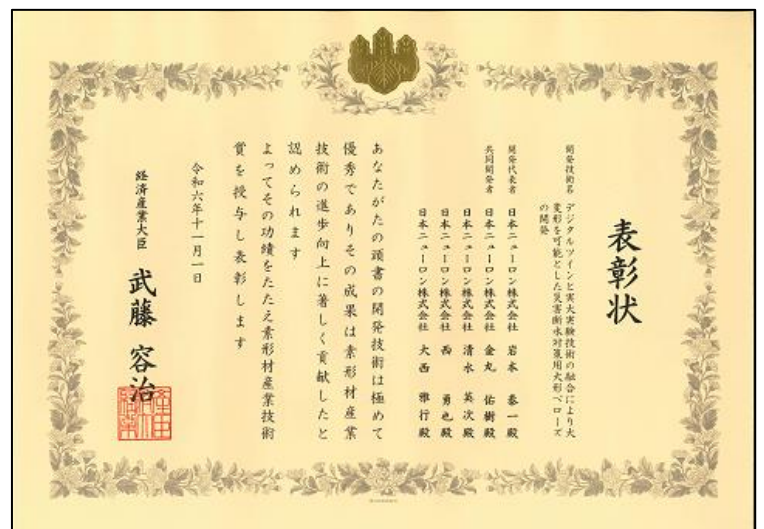 表彰状
開発技術名 デジタルツインと実大実験技術の融合により大
変形を可能とした災害断水対策用大形ベローズ
の開発
開発代表者 日本ニューロン株式会社 岩本 泰一殿
共同開発者 日本ニューロン株式会社 金丸 佑樹殿
日本ニューロン株式会社 清水 英次殿
日本ニューロン株式会社 西 勇也殿
日本ニューロン株式会社 大西 雅行殿
あなたがたの頭書の開発技術は極めて
優秀でありその成果は素形材産業
技術の進歩向上に著しく貢献したと
認められます
よってその功績をたたえ素形材産業技術
賞を授与し表彰します
令和六年十一月一日
経済産業大臣 武藤 容治